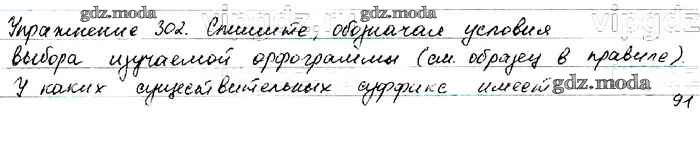 gdz.moda gdz.moda vipgdz
Упражнение 302. Спишите, обозначая условия
выбора изучаемой орфограммы (см. образец в правиле).
gdz.moda
У каких существительных суффикс имеет
gdz.moda gdz.moda
91